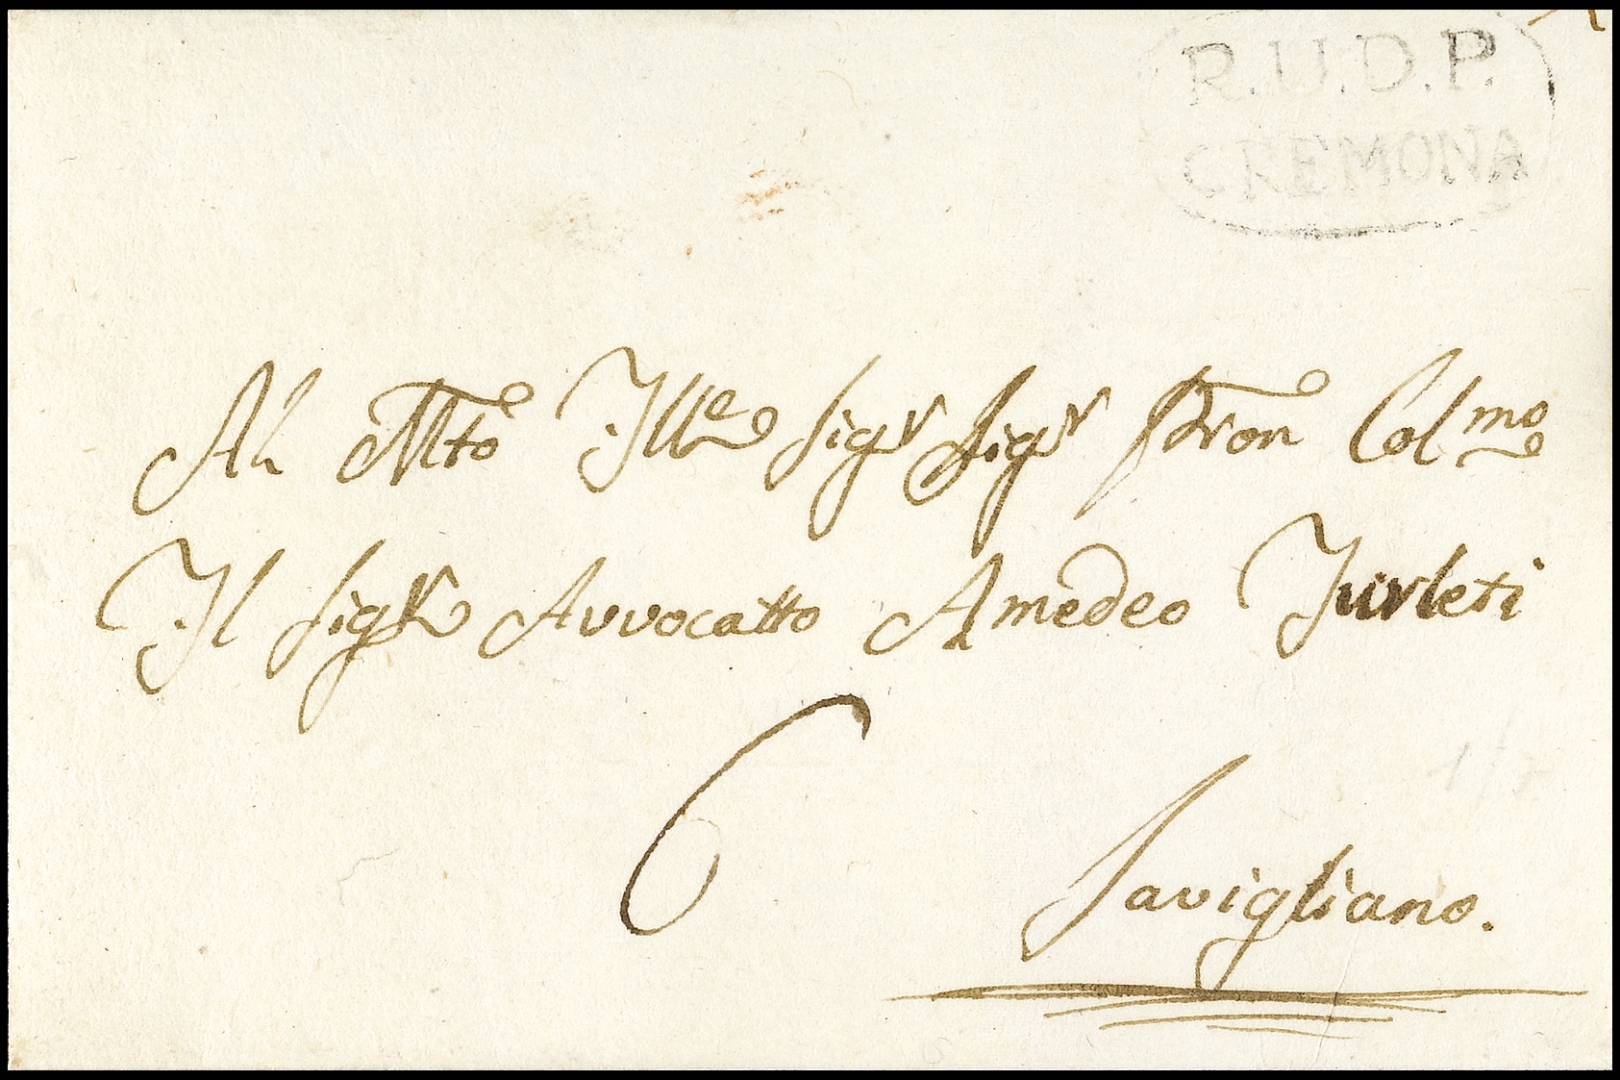 R.U.D.P.
CREMONA
Al Mto Ille Sigr Sigr Pron Colmo
Il Sigr Avvocatto Amedeo Turleti
6
Savigliano.